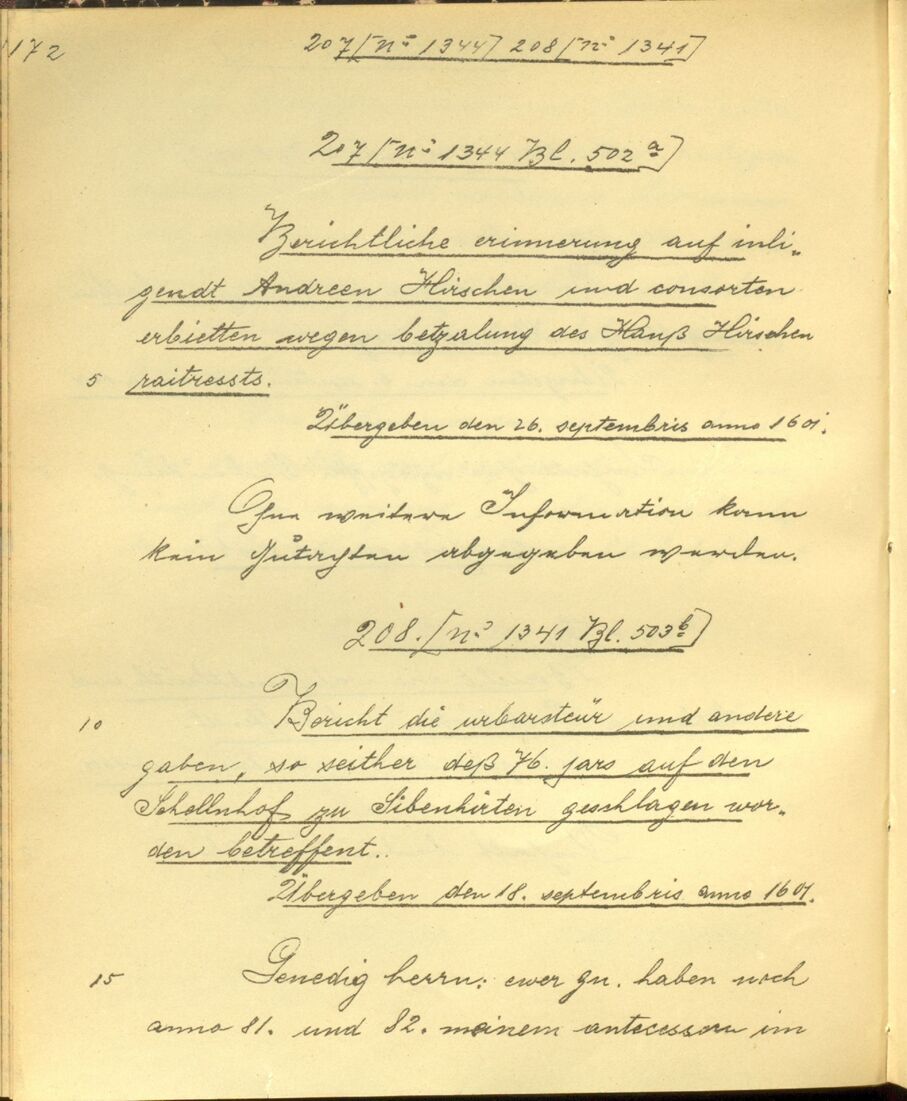 172
207 [Nº 1344] 208 [Nº 1341]
207 [Nº 1344 Bl. 502ª]
Berichtliche erinnerung auf inli-
gendt Andreen Hirschen und consorten
erbietten wegen betzalung des Hanß Hirschen
5 raitressts.
Übergeben den 26. septembris anno 1601.
Ohne weitere Information kann
kein Gutachten abgegeben werden.
208. [Nº 1341 Bl. 503b]
10 Bericht die urbarsteür und andere
gaben, so seither deß 76. jars auf den
Schellnhof zu Sibenhirten geschlagen wor-
den betreffent.
Übergeben den 18. septembris anno 1601.
15 Genedig herrn: ewer gn. haben noch
anno 81. und 82. meinem antecessorn im